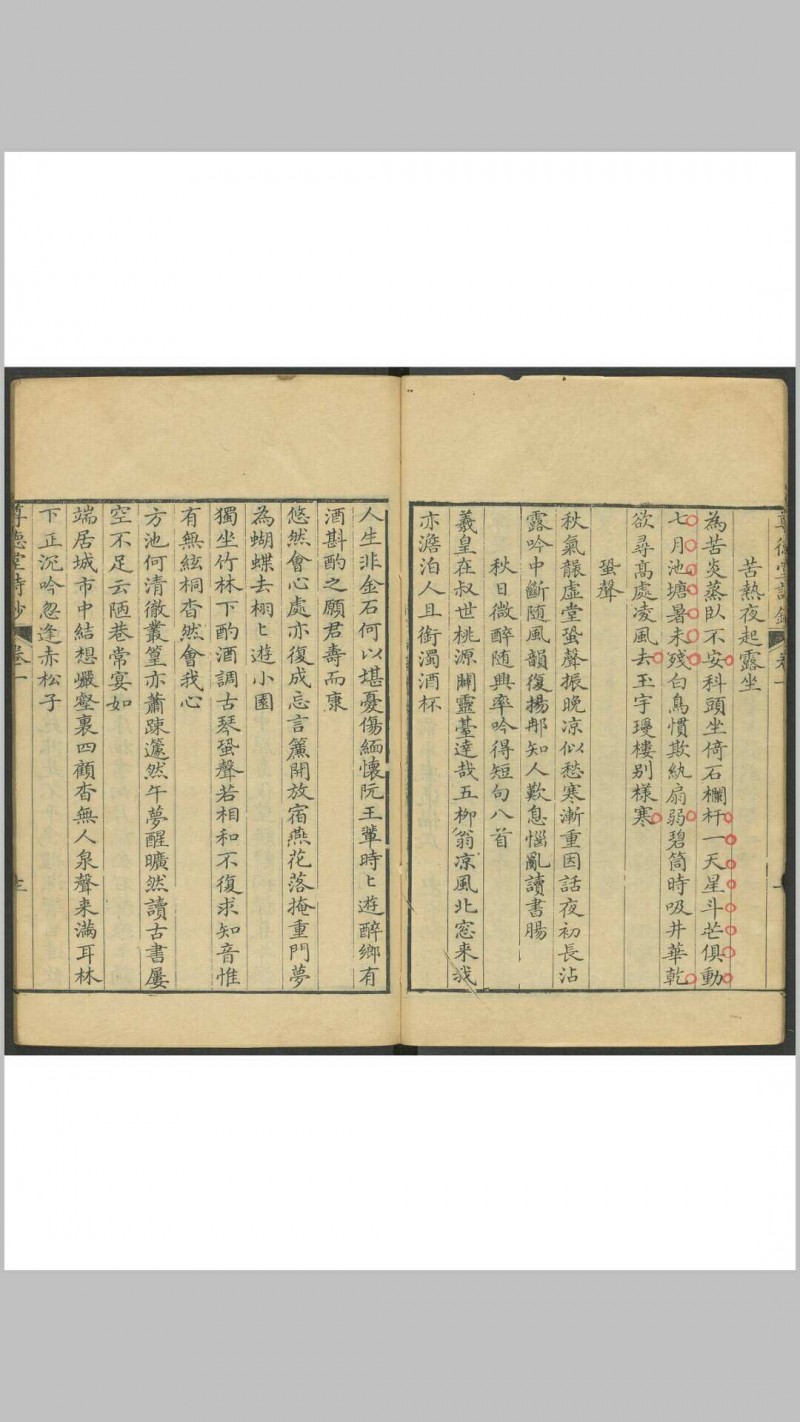 苦熱夜起露坐
為苦炎蒸臥不安科頭坐倚石欄杆一天星斗芒俱動
七月池塘暑未殘白鳥慣欺紈扇弱碧筒時吸井華乾
欲尋高處凌風去玉宇瓊樓别樣寒
蛩聲
秋氣釀虛堂蛩聲振晚凉似愁寒漸重因話夜初長沾
露吟中斷随風韻復揚那知人歎息惱亂讀書腸
秋日微醉随興率吟得短句八首
羲皇在叔世桃源闢靈臺達哉五柳翁凉風北窓来我
亦澹泊人且銜濁酒杯
人生非金石何以堪憂傷緬懷阮王輩時〻遊醉鄉有
酒斟酌之願君壽而康
悠然會心處亦復成忘言簾開放宿燕花落掩重門夢
為蝴蝶去栩〻遊小園
獨坐竹林下酌酒調古琴蛩聲若相和不復求知音惟
有無絃桐杳然會我心
方池何清徹叢篁亦蕭踈蘧然午夢醒曠然讀古書屢
空不足云陋巷常宴如
端居城市中結想巖壑裏四顧杳無人泉聲来滿耳林
下正沉吟忽逢赤松子
尊德堂詩鈔 卷一